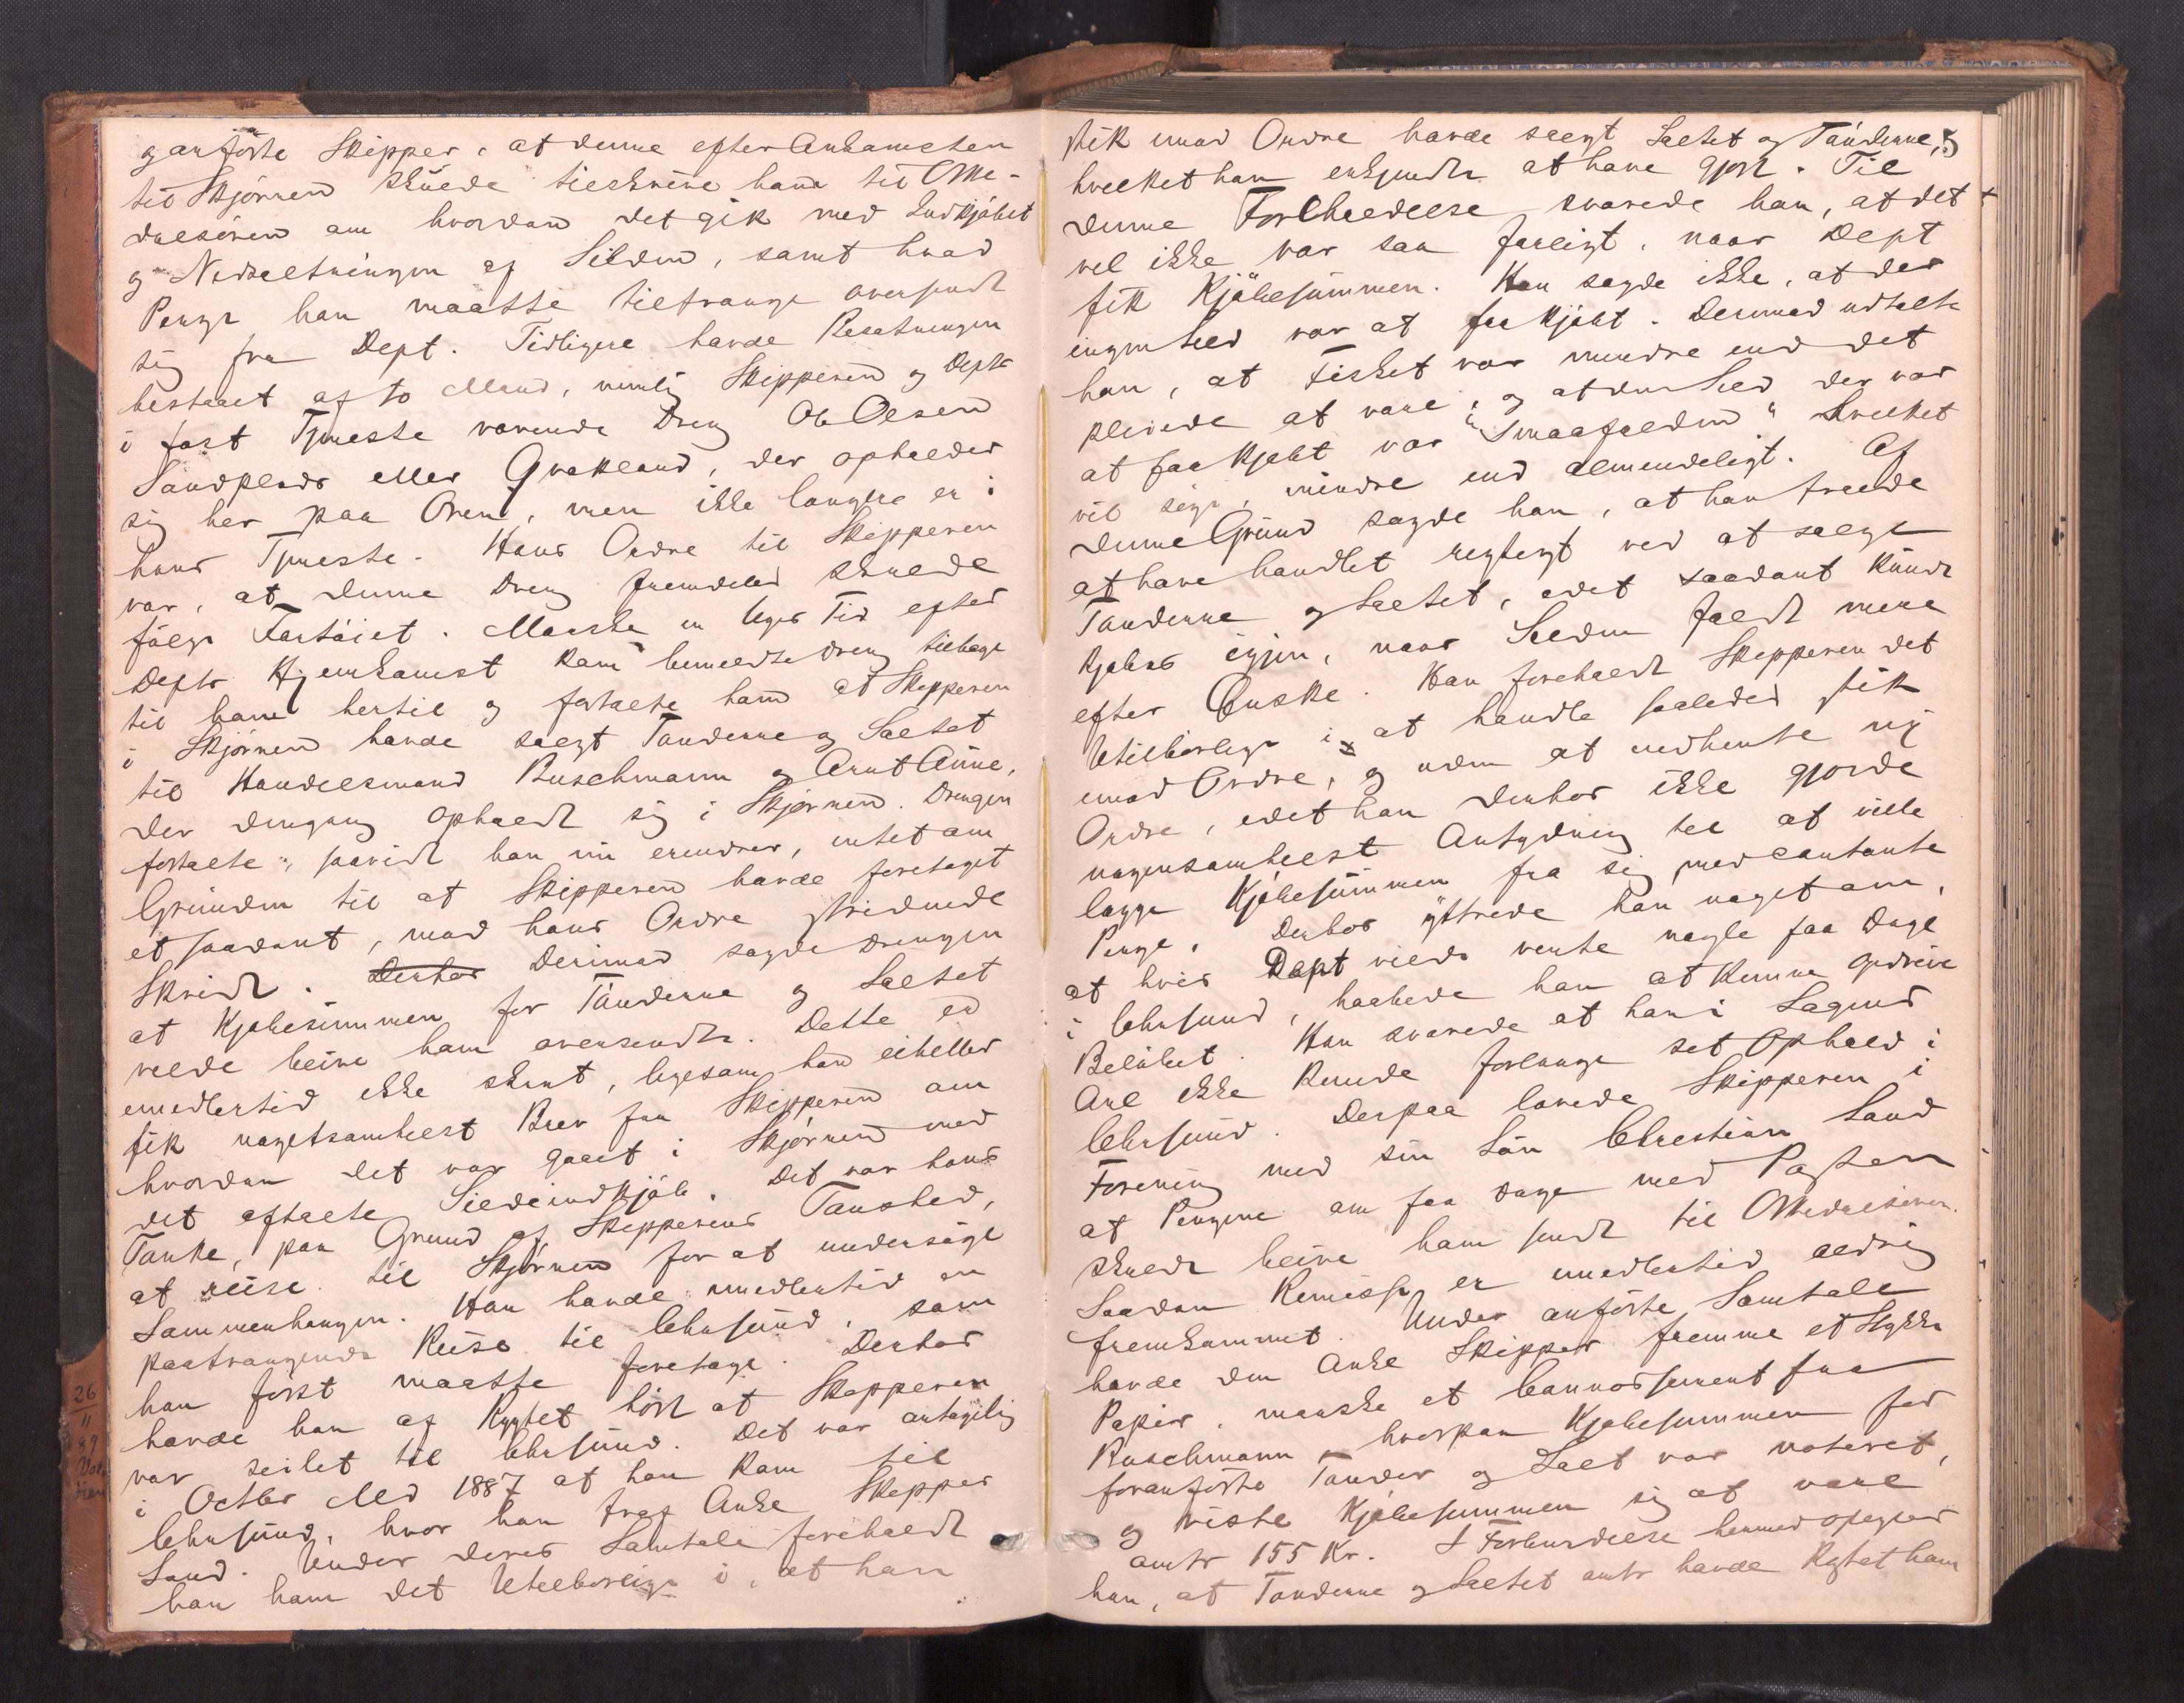 ganförte Skipper, at denne efter Ankomsten
til Skjörnen skulde tilskrive ham til Me-
dalsören om hvordan det gik med Indkjöbet
og Nedsaltningen af Silden, samt hvad
Penge han maatte tiltrænge oversendt
sig fra Dept. Tidligere havde Besætningen
bestaaet af to Mand, nemlig Skipperen og Depts
i fast Tjeneste værende Dreng Ole Olsen
Sandplads eller Grakland, der opholder
sig her paa Ören, men ikke længere er i
hans Tjeneste. Hans Ordre til Skipperen
var, at denne Dreng fremdeles skulde
fölge Fartöiet. Maaske en Uges Tid efter
Depts Hjemkomst kom bemeldte Dreng tilbage
til ham hertil og fortalte ham at Skipperen
i Skjörnen havde solgt Tönderne og Saltet
til Handelsmand Buschmann og Arnt Aune,
der dengang opholdt sig i Skjörnen. Drengen
fortalte, saavidt han nu erindrer, intet om
Grunden til at Skipperen havde foretaget
et saadant, mod hans Ordre stridende
Skridt. Derhos Derimod sagde Drengen
at Kjöbesummen for Tönderne og Saltet
vilde blive ham oversendt. Dette er
imidlertid ikke skeet, ligesom han eiheller
fik nogetsomhelst Brev fra Skipperen om
hvordan det var gaaet i Skjörnen med
det aftalte Sildeindkjöb. Det var hans
Tanke, paa Grund af Skipperens Taushed,
at reise til Skjörnen for at undersöge
Sammenhængen. Han havde imidlertid en
paatrængende Reise til Lehnsund, som
han först maatte foretage. Derhos
havde han af Rygtet hört at Skipperen
var seilet til Lehnsund. Det var antagelig
i Octbr Md 1887 at han kom til
Lehnsund, hvor han traf Anke Skipper
Sand. Under deres Samtale foreholdt
han ham det Utilbörlige i, at han
26
11
89
stik imod Ordre havde solgt Saltet og Tönderne, 5
hvilket han erkjendte at have gjort. Til
denne Foreholdelse svarede han, at det
vel ikke var saa farligt, naar Dept
fik Kjöbesummen. Han sagde ikke, at der
ingen Sild var at faa kjöbt. Derimod udtalte
han, at Fisket var mindre end det
pleiede at være, og at den Sild der var
at faa kjöbt var "Smaafalden" hvilket
vil sige, mindre end almindeligt. Af
denne Grund sagde han, at han troede
at have handlet rigtigt ved at sælge
Tönderne og Saltet, idet saadant kunde
kjöbes igjen, naar Silden faldt mere
efter Önske. Han foreholdt Skipperen det
Utilbörlige i at handle saaledes stik
imod Ordre, og uden at indhente ny
Ordre, idet han derhos ikke gjorde
nogensomhelst Antydning til at ville
lægge Kjöbesummen fra sig med contante
Penge. Derhos yttrede han noget om,
at hvis Dept vilde vente nogle faa Dage
i Lehnsund, haabede han at kunne opdrive
Belöbet. Han svarede at han i Sagens
Anl ikke kunde forlænge sit Ophold i
Lehnsund. Derpaa lovede Skipperen i
Forening med sin Sön Christian Sand
at Pengene om faa Dage med Posten
skulde blive ham sendt til Medalsören.
Saadan Remisse er imidlertid aldrig
fremkommet. Under anförte Samtale
havde den Anke Skipper fremme et Stykke
Papir, maaske et Connossement fra
Buschmann, hvorpaa Kjöbesummen for
foranförte Tönder og Salt var noteret,
og viste Kjöbesummen sig at være
omtr 155 Kr. I Forbindelse hermed opgiver
han, at Tönderne og Saltet omtr havde kostet ham